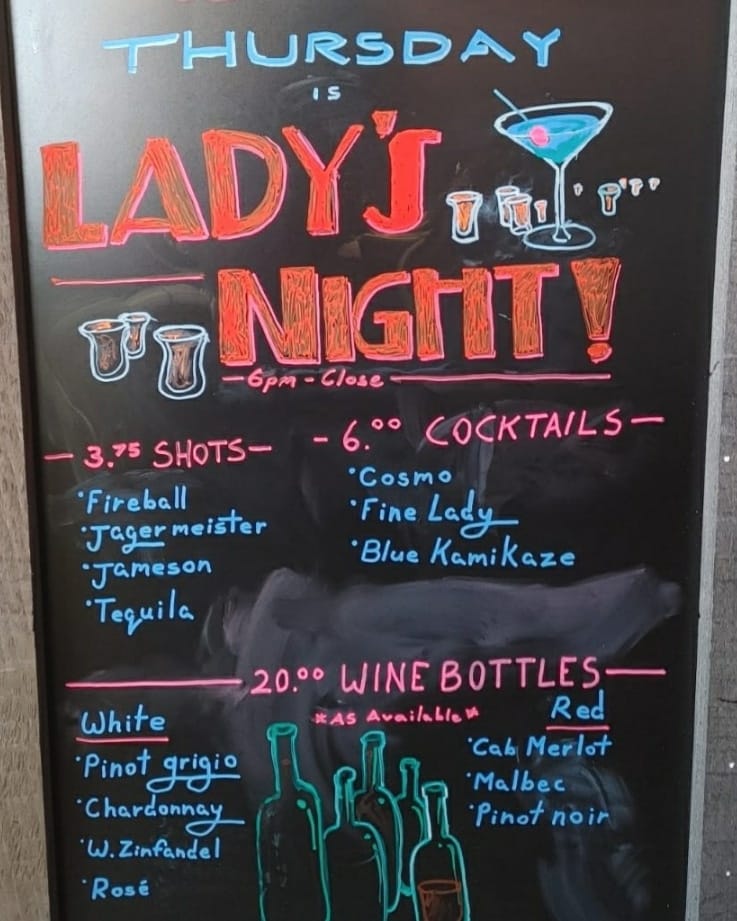 THURSDAY
IS
LADY'S
NIGHT!
6pm - Close
- 3.75 SHOTS-
- 6.00 COCKTAILS-
·Fireball
·Jagermeister
·Jameson
·Tequila
·Cosmo
·Fine Lady
·Blue Kamikaze
20.00 WINE BOTTLES
*AS Available*
White
·Pinot grigio
·Chardonnay
·W. Zinfandel
·Rosé
Red
·Cab Merlot
·Malbec
·Pinot noir